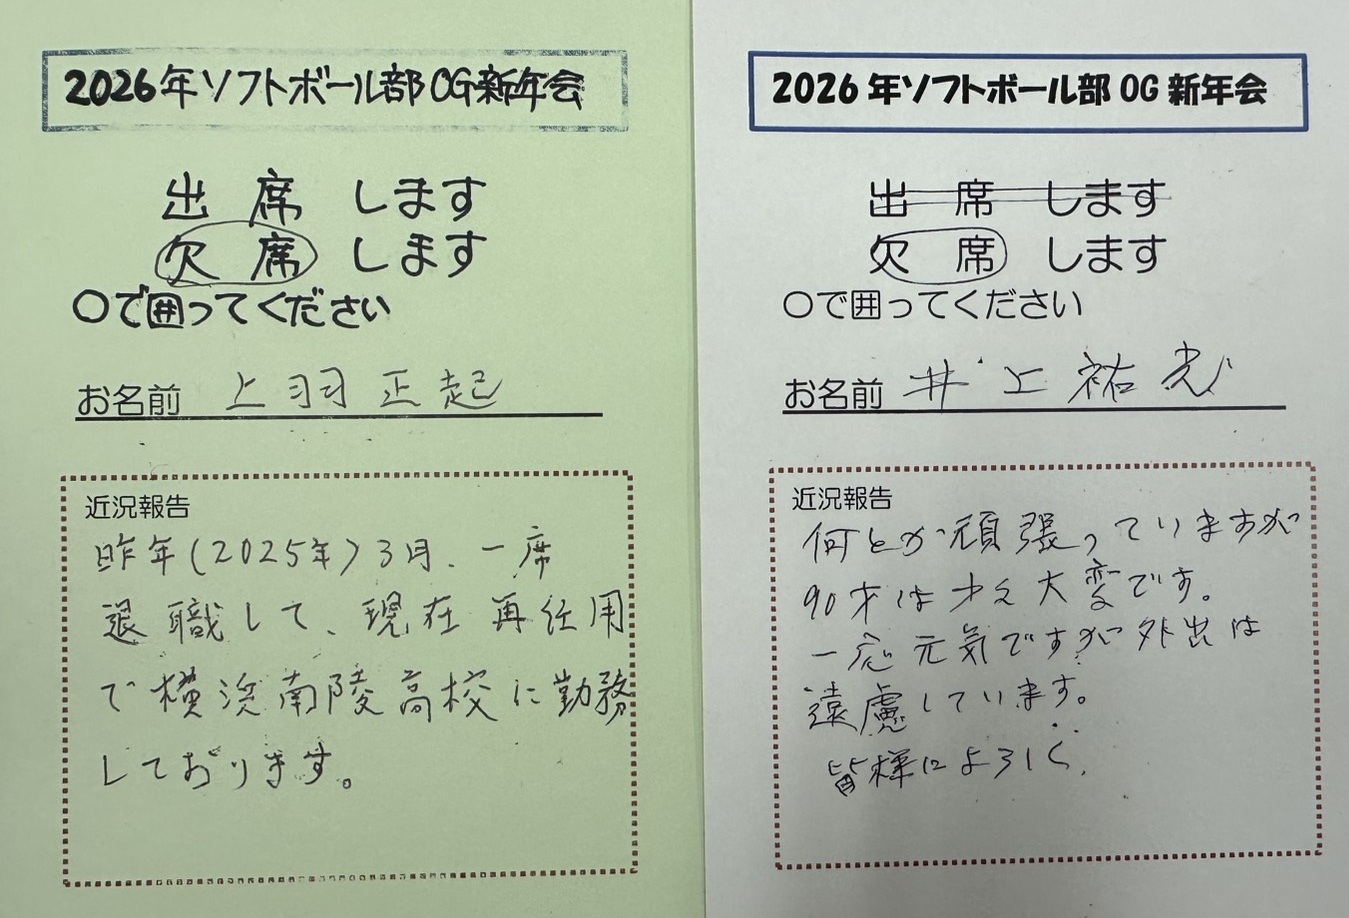 2026年ソフトボール部OG新年会
出 席 します
欠 席 します
〇で囲ってください
お名前 上羽正起
近況報告
昨年(2025年)3月、一席
退職して、現在再任用
で横浜南陵高校に勤務
しております。
2026年ソフトボール部OG新年会
出 席 します
欠 席 します
〇で囲ってください
お名前 井上祐光
近況報告
何とか頑張っていますが
90才はさえ大変です。
一応元気ですが外出は
遠慮しています。
皆様によろしく、